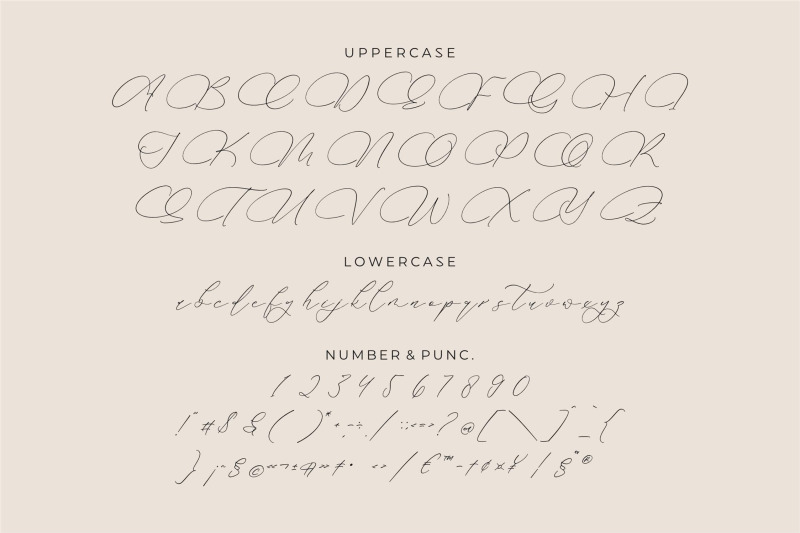 UPPERCASE
A B C D E F G H I
J K L M N O P Q R
S T U V W X Y Z
LOWERCASE
abcdefghijklmnopqrstuvwxyz
NUMBER & PUNC.
1 2 3 4 5 6 7 8 9 0
! " # $ & ( ) * + , - . ÷ / : ; < = > ? @ [ \ ] ^ _ ` {
} ¡ § © « ¬ ± ¶ » ≠ • ‹ › / € ™ − † ¢ ¤ ¥ | § ®